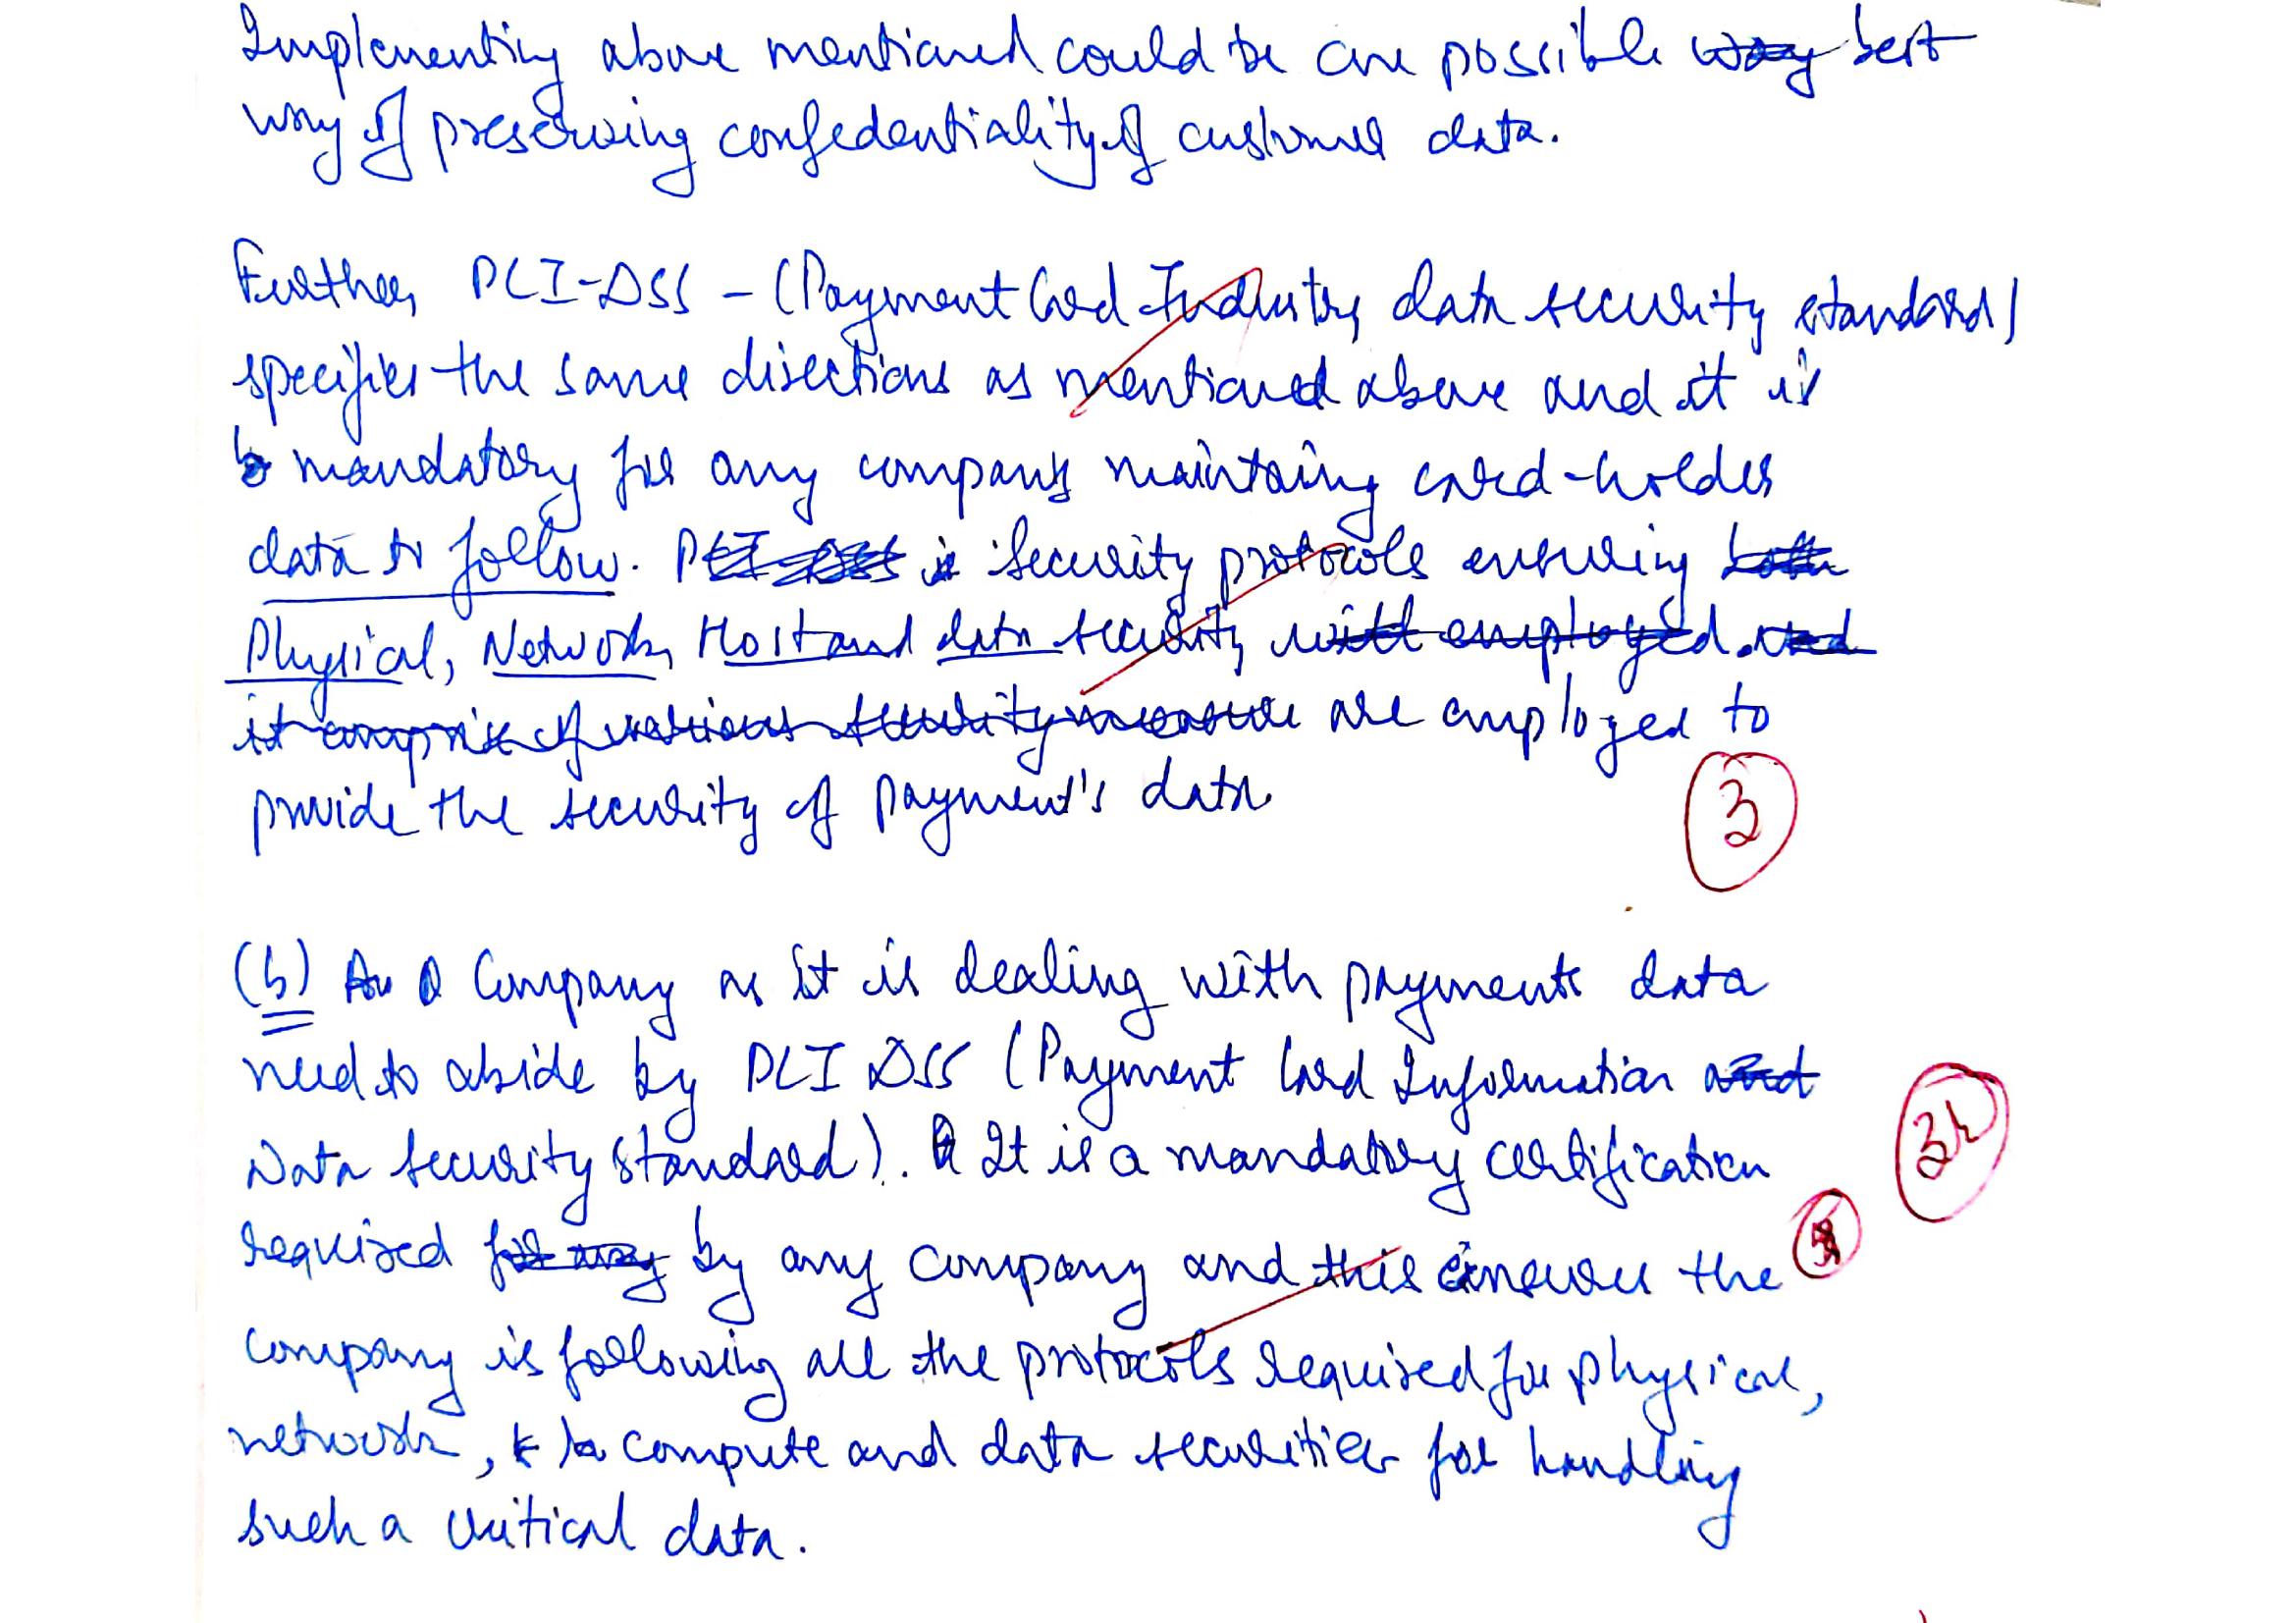 Implementing above mentioned could be one possible way best
way of preserving confedentiality of customer data.
Further, PCI-DSS - (Payment Card Industry data security standard)
specifies the same directions as mentioned above and it is
mandatory for any company maintaing card-holder
data to follow. PCI-DSS is Security protocols ensuring both
Physical, Network, Host and data security will employed. and
it comprise of various security measure are employed to
provide the security of Payment's data.
3
(b) A Company as it is dealing with payments data
need to abide by PCI DSS (Payment Card Information and
Data Security Standard). It is a mandatory certification
required for any by any company and this ensures the
company is following all the protocols required for physical,
network, compute and data securities for handling
such a critical data.